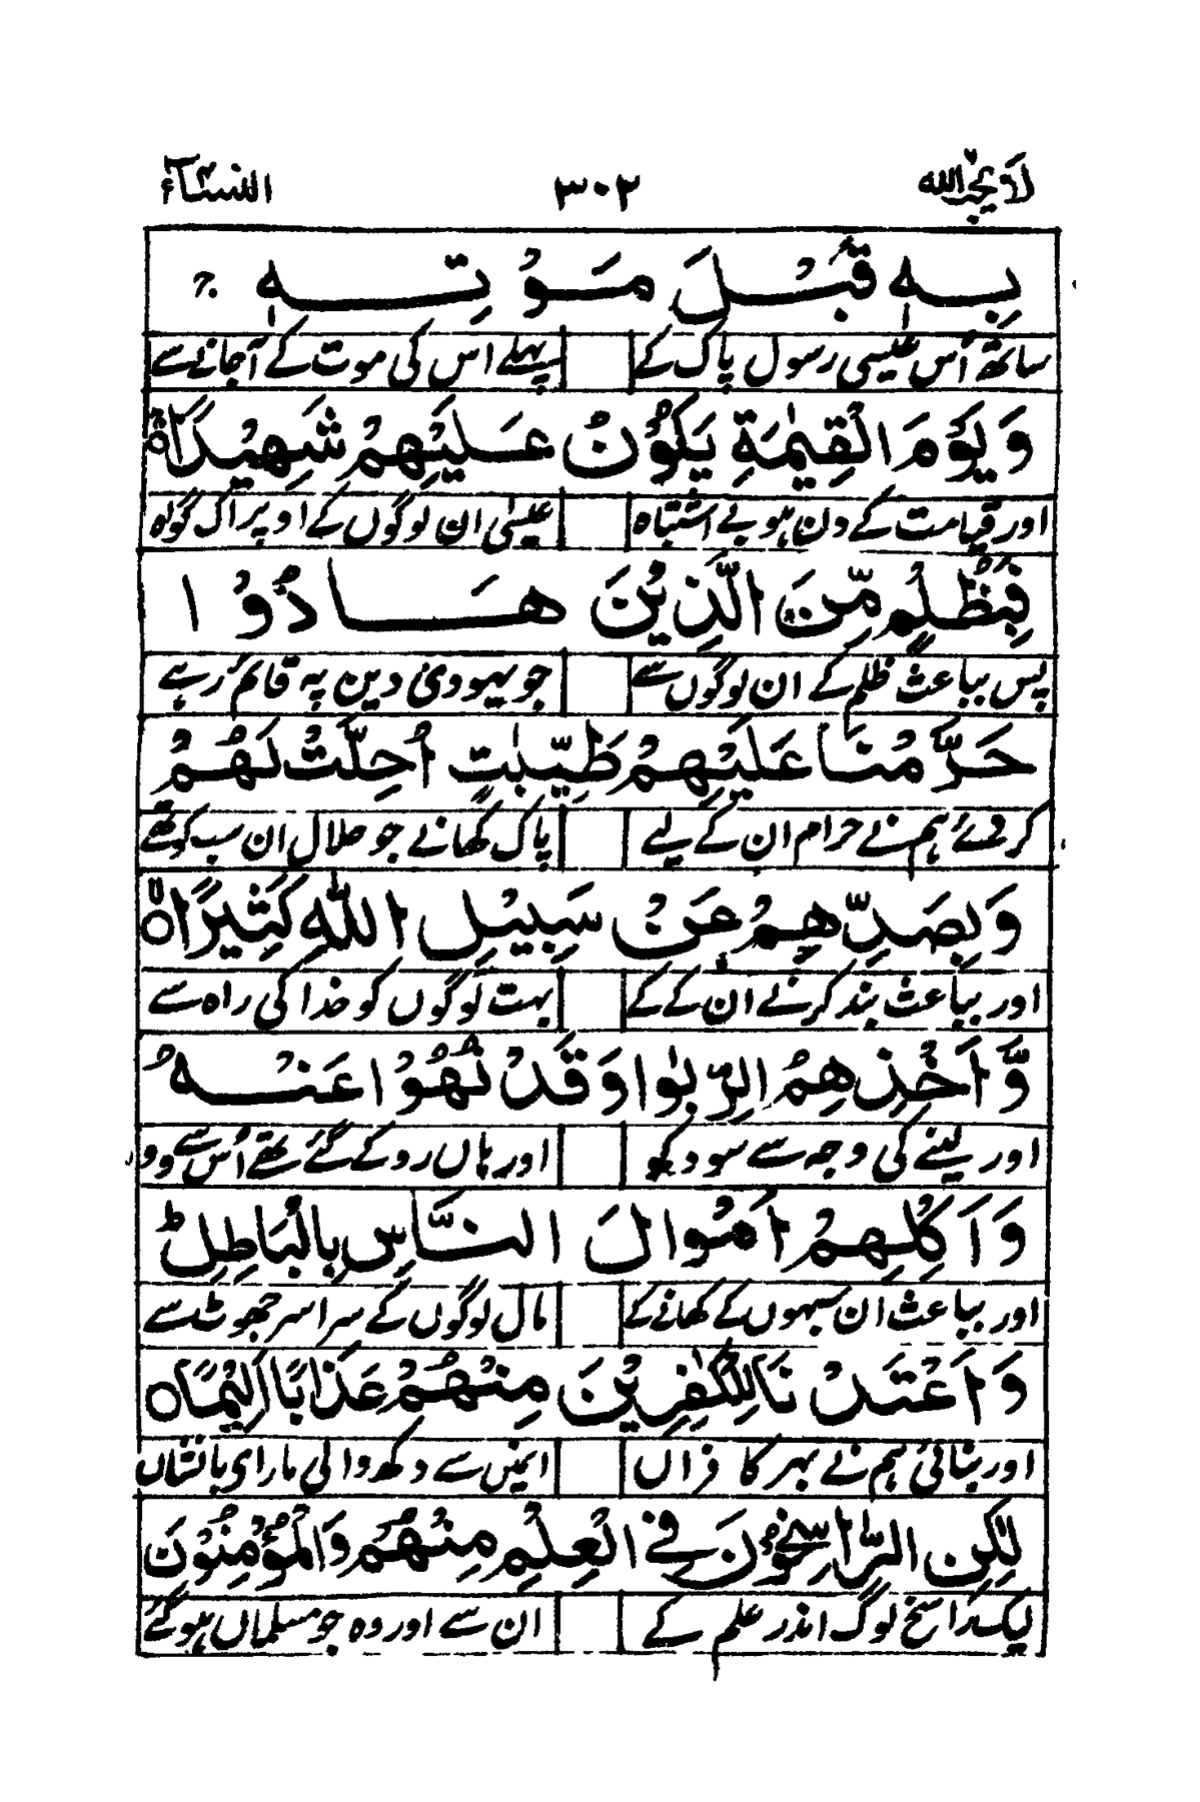 لا یحب اللہ ۳۰۲ النسآء ۴
بِهٖ قَبْلَ مَوْتِهٖ ج
ساتھ اس عیسیٰ رسول پاک کے پہلے اس کی موت کے آجانے سے
وَيَوْمَ الْقِيٰمَةِ يَكُوْنُ عَلَيْهِمْ شَهِيْدًا ۝
اور قیامت کے دن ہو بے اشتباہ عیسیٰ ان لوگوں کے اوپر اک گواہ
فَبِظُلْمٍ مِّنَ الَّذِيْنَ هَادُوْا
پس بباعث ظلم کے ان لوگوں سے جو یہودی دین پہ قائم رہے
حَرَّمْنَا عَلَيْهِمْ طَيِّبٰتٍ اُحِلَّتْ لَهُمْ
کر دئے ہم نے حرام ان کے لیے پاک کھانے جو حلال ان سب کو تھے
وَبِصَدِّهِمْ عَنْ سَبِيْلِ اللّٰهِ كَثِيْرًا ۝
اور بباعث بند کرنے ان کے کے بہت لوگوں کو خدا کی راہ سے
وَّاَخْذِهِمُ الرِّبٰوا وَقَدْ نُهُوْا عَنْهُ
اور لینے کی وجہ سے سود کو اور ہاں روکے گئے تھے اس سے وو
وَاَكْلِهِمْ اَمْوَالَ النَّاسِ بِالْبَاطِلِ ط
اور بباعث ان سبہوں کے کھانے کے مال لوگوں کے سراسر جھوٹ سے
وَاَعْتَدْنَا لِلْكٰفِرِيْنَ مِنْهُمْ عَذَابًا اَلِيْمًا ۝
اور بنائی ہم نے بہر کافراں انمیں سے دکھ والی مار ای بانشاں
لٰكِنِ الرَّاسِخُوْنَ فِي الْعِلْمِ مِنْهُمْ وَالْمُؤْمِنُوْنَ
لیک راسخ لوگ اندر علم کے ان سے اور وہ جو مسلماں ہو گئے